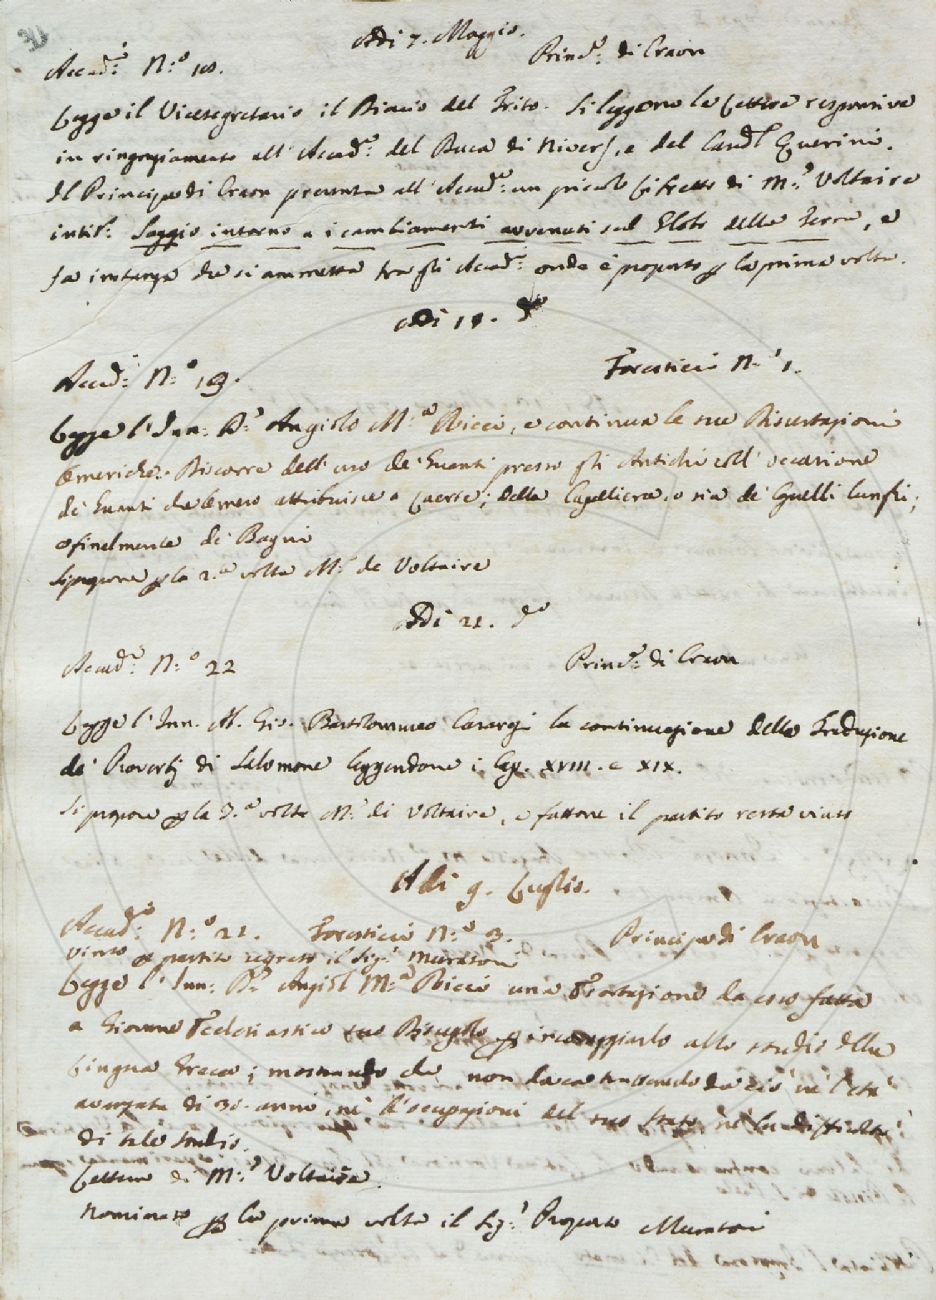 Adì 7. Maggio.
Accad.i N.o 10. Princ.e di Craon
Legge il Vicesegretario il Diario del Solito. Si leggono le Lettere responsive
in ringraziamento all' Accad.a del Duca di Nivers, e del Card.l Querini.
Il Principe di Craon presenta all' Accad.a un piccolo Libretto di M.r Voltaire
intit.o Saggio intorno a i cambiamenti avvenuti sul Globo della Terra, e
fa instanza che si ammetta tra gli Accad.i onde è proposto p la prima volta.
Adì 14. d.o
Accad.i N.o 19. Forestieri N.o 1.
Legge l'Inn. D.r Angiolo M.a Ricci, e continua le sue Dissertazioni
Omeriche. Discorre dell' uso de' Guanti presso gli Antichi coll' occasione
de' Guanti che Omero attribuisce a Laerte; della Capelliera, o sia de' Capelli lunghi;
e finalmente de' Bagni
Si propone p la 2.a volta M.r de Voltaire
Adì 21. d.o
Accad.i N.o 22 Princ.e di Craon
Legge l'Inn. A. Gio. Bartolommeo Casaregi la continuazione della Traduzione
de' Proverbj di Salomone leggendone i Cap. XVIII. e XIX.
Si propone p la 3.a volta M.r di Voltaire, e fattone il partito resta vinto
Adì 9. Luglio.
Accad.i N.o 21. Forestieri N.o 3. Principe di Craon
Vinto p partito segreto il Sig.r Muratori
Legge l'Inn. D.r Angiol M.a Ricci una Esortazione da esso fatta
a Giovane Ecclesiastico suo Discepolo p incoraggiarlo allo studio della
Lingua Greca; mostrando che non da ciò nè l'età
avanzata di 30. anni, nè l'occupazioni del suo stato, nè la difficoltà
di tale studio.
Lettera di M.r Voltaire.
Nominato p la prima volta il Sig.r Proposto Muratori